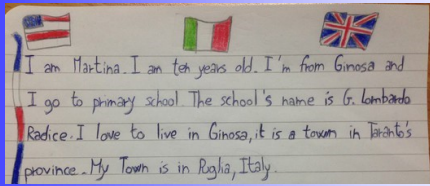 I am Martina. I am ten years old. I'm from Ginosa and
I go to primary school. The school's name is G. Lombardo
Radice. I love to live in Ginosa, it is a town in Taranto's
province. My Town is in Puglia, Italy.